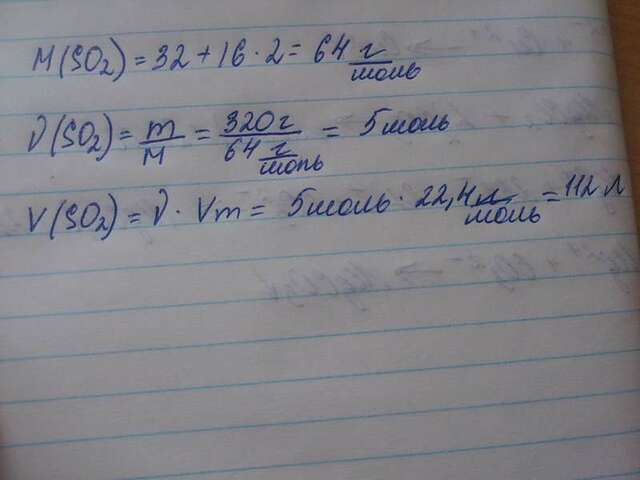 M(SO2) = 32 + 16 · 2 = 64 г/моль
ν(SO2) = m/M = 320 г/64 г/моль = 5 моль
V(SO2) = ν · Vm = 5 моль · 22,4 л/моль = 112 л